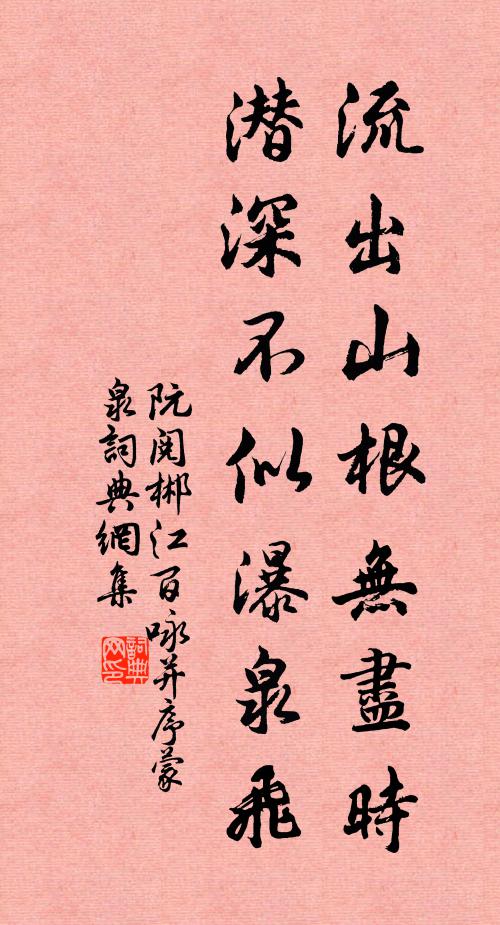 流出山根無盡時
潛深不似瀑泉飛
阮閱郴江百咏并序蒙
泉詞典網集
詞典
网印